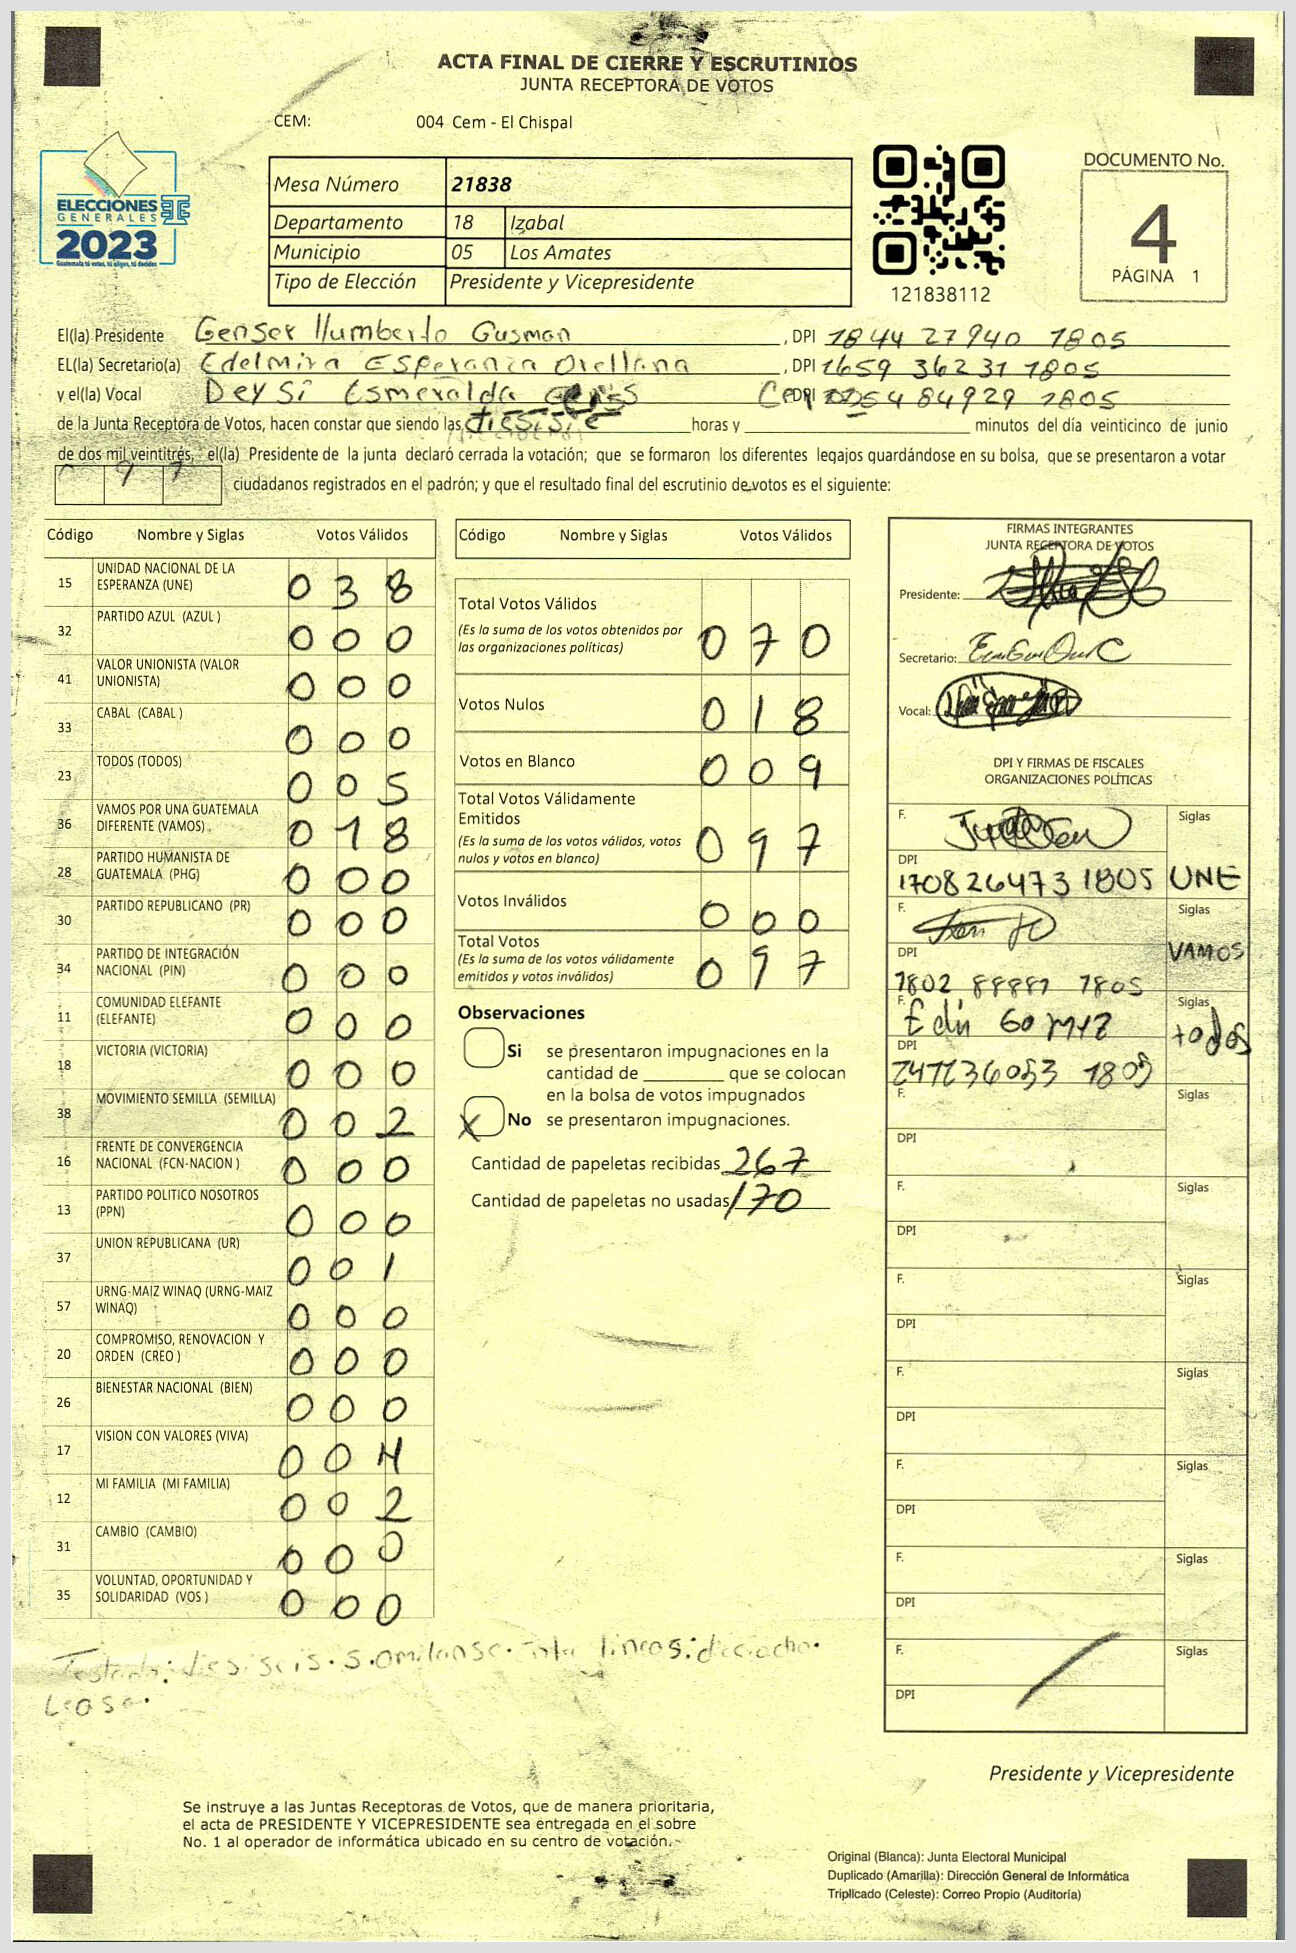 ACTA FINAL DE CIERRE Y ESCRUTINIOS
JUNTA RECEPTORA DE VOTOS
CEM: 004 Cem - El Chispal
ELECCIONES
GENERALES
2023
Guatemala tú votas, tú eliges, tú decides
Mesa Número 21838
Departamento 18 Izabal
Municipio 05 Los Amates
Tipo de Elección Presidente y Vicepresidente
121838112
DOCUMENTO No.
4
PÁGINA 1
El(la) Presidente Genser Humberto Gusman , DPI 1844 27940 1805
EL(la) Secretario(a) Edelmira Esperanza Orellana , DPI 1659 36231 1805
y el(la) Vocal Deysi Esmeralda DPI 84929 1805
de la Junta Receptora de Votos, hacen constar que siendo las horas y minutos del día veinticinco de junio
de dos mil veintitrés, el(la) Presidente de la junta declaró cerrada la votación; que se formaron los diferentes legajos guardándose en su bolsa, que se presentaron a votar
97 ciudadanos registrados en el padrón; y que el resultado final del escrutinio de votos es el siguiente:
Código Nombre y Siglas Votos Válidos
15 UNIDAD NACIONAL DE LA ESPERANZA (UNE) 038
32 PARTIDO AZUL (AZUL ) 000
41 VALOR UNIONISTA (VALOR UNIONISTA) 000
33 CABAL (CABAL ) 000
23 TODOS (TODOS) 005
36 VAMOS POR UNA GUATEMALA DIFERENTE (VAMOS) 018
28 PARTIDO HUMANISTA DE GUATEMALA (PHG) 000
30 PARTIDO REPUBLICANO (PR) 000
34 PARTIDO DE INTEGRACIÓN NACIONAL (PIN) 000
11 COMUNIDAD ELEFANTE (ELEFANTE) 000
18 VICTORIA (VICTORIA) 000
38 MOVIMIENTO SEMILLA (SEMILLA) 002
16 FRENTE DE CONVERGENCIA NACIONAL (FCN-NACION ) 000
13 PARTIDO POLITICO NOSOTROS (PPN) 000
37 UNION REPUBLICANA (UR) 001
57 URNG-MAIZ WINAQ (URNG-MAIZ WINAQ) 000
20 COMPROMISO, RENOVACION Y ORDEN (CREO ) 000
26 BIENESTAR NACIONAL (BIEN) 000
17 VISION CON VALORES (VIVA) 004
12 MI FAMILIA (MI FAMILIA) 002
31 CAMBIO (CAMBIO) 000
35 VOLUNTAD, OPORTUNIDAD Y SOLIDARIDAD (VOS ) 000
Código Nombre y Siglas Votos Válidos
Total Votos Válidos
(Es la suma de los votos obtenidos por las organizaciones políticas) 070
Votos Nulos 018
Votos en Blanco 009
Total Votos Válidamente Emitidos
(Es la suma de los votos válidos, votos nulos y votos en blanco) 097
Votos Inválidos 000
Total Votos
(Es la suma de los votos válidamente emitidos y votos inválidos) 097
Observaciones
Si se presentaron impugnaciones en la
cantidad de ________ que se colocan
en la bolsa de votos impugnados
X No se presentaron impugnaciones.
Cantidad de papeletas recibidas 267
Cantidad de papeletas no usadas 170
FIRMAS INTEGRANTES
JUNTA RECEPTORA DE VOTOS
Presidente:
Secretario:
Vocal:
DPI Y FIRMAS DE FISCALES
ORGANIZACIONES POLÍTICAS
F. Siglas
DPI
170826473 1805 UNE
F. Siglas
DPI VAMOS
1802 88881 1805
F. Edin Gomez Siglas
DPI todos
F. Siglas
DPI
F. Siglas
DPI
F. Siglas
DPI
F. Siglas
DPI
F. Siglas
DPI
F. Siglas
DPI
F. Siglas
DPI
Testado: diesiseis. lineas: dieciocho.
Lease.
Presidente y Vicepresidente
Se instruye a las Juntas Receptoras de Votos, que de manera prioritaria,
el acta de PRESIDENTE Y VICEPRESIDENTE sea entregada en el sobre
No. 1 al operador de informática ubicado en su centro de votación.
Original (Blanca): Junta Electoral Municipal
Duplicado (Amarilla): Dirección General de Informática
Triplicado (Celeste): Correo Propio (Auditoría)